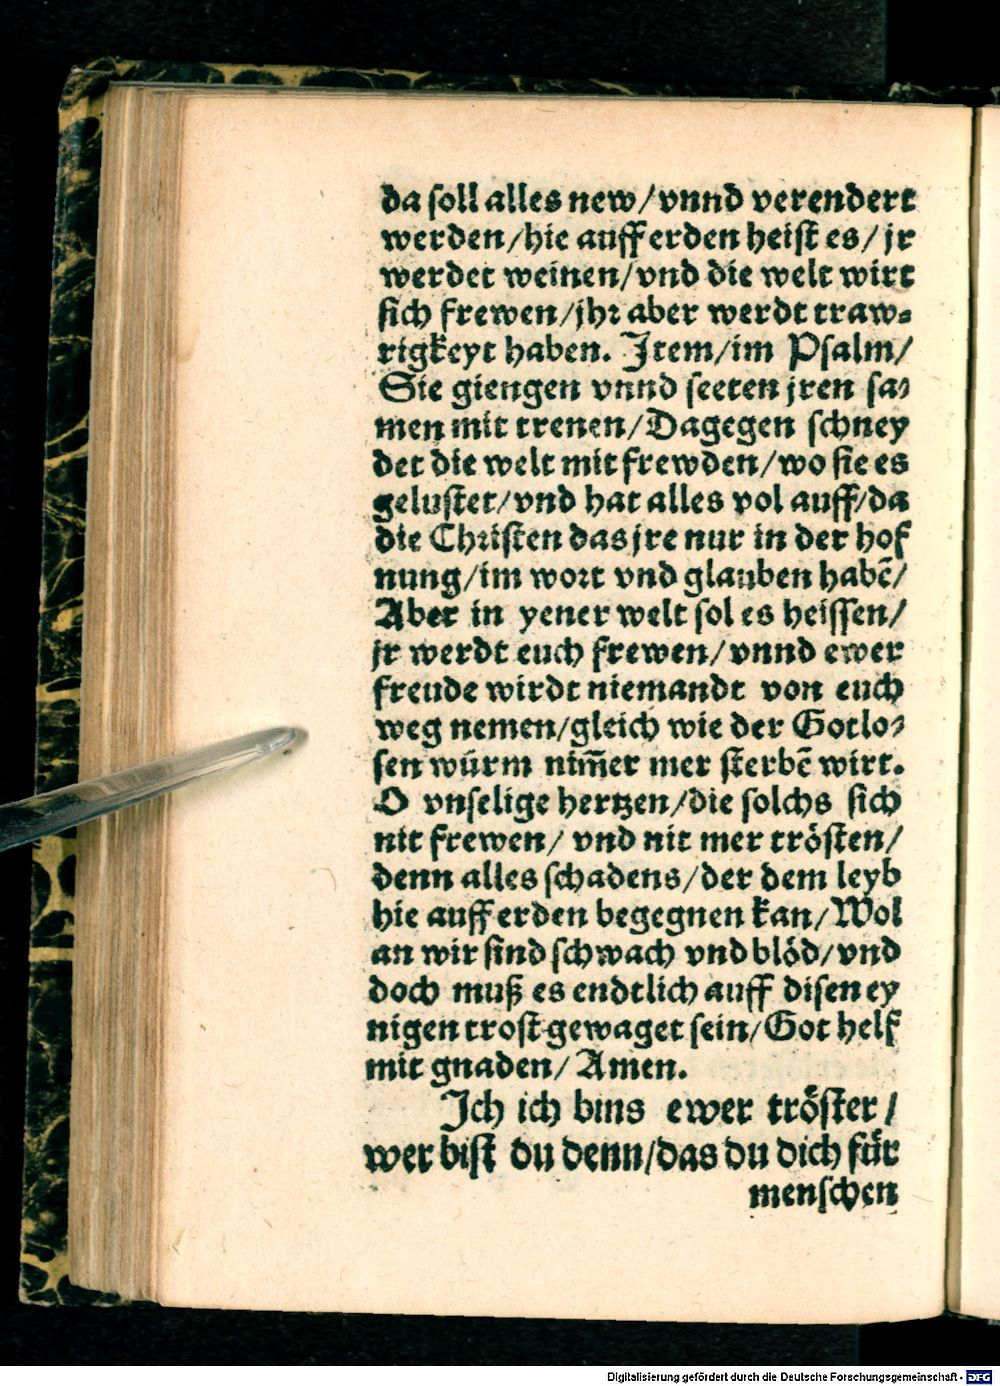 da ſoll alles new/vnnd verendert
werden/hie auff erden heiſt es/jr
werdet weinen/vnd die welt wirt
ſich frewen/jhr aber werdt traw⸗
rigkeyt haben. Item/im Pſalm/
Sie giengen vnnd ſeeten jren ſa⸗
men mit trenen/Dagegen ſchney
det die welt mit frewden/wo ſie es
geluſtet/vnd hat alles vol auff/da
die Chriſten das jre nur in der hof
nung/im wort vnd glauben habē/
Aber in yener welt ſol es heiſſen/
jr werdt euch frewen/vnnd ewer
freude wirdt niemandt von euch
weg nemen/gleich wie der Gotlo⸗
ſen würm nim̄er mer ſterbē wirt.
O vnſelige hertzen/die ſolchs ſich
nit frewen/ vnd nit mer tröſten/
denn alles ſchadens/der dem leyb
hie auff erden begegnen kan/Wol
an wir ſind ſchwach vnd blöd/vnd
doch muß es endtlich auff diſen ey
nigen troſt gewaget ſein/Got helf
mit gnaden/ Amen.
Ich ich bins ewer tröſter/
wer biſt du denn/das du dich für
menſchen
Digitalisierung gefördert durch die Deutsche Forschungsgemeinschaft - DFG